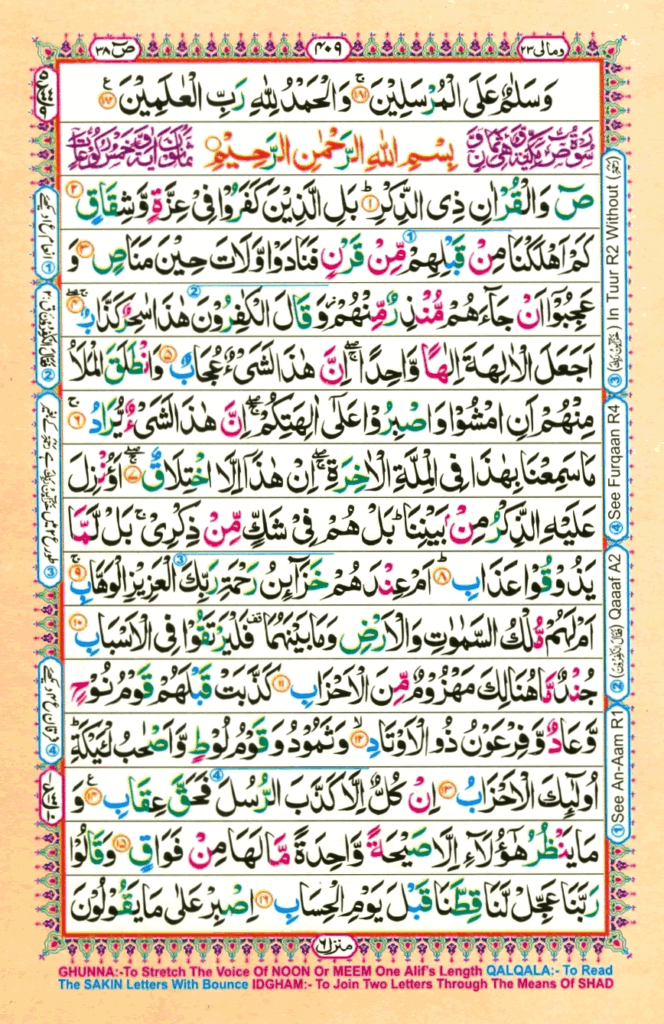 صٓ ٣٨
٤٠٩
ومالی ٢٣
وَسَلٰمٌ عَلَى الْمُرْسَلِيْنَ ﴿١٨١﴾ وَالْحَمْدُ لِلّٰهِ رَبِّ الْعٰلَمِيْنَ ﴿١٨٢﴾
بِسْمِ اللّٰهِ الرَّحْمٰنِ الرَّحِيْمِ
صٓ وَالْقُرْاٰنِ ذِى الذِّكْرِ ﴿١﴾ بَلِ الَّذِيْنَ كَفَرُوْا فِىْ عِزَّةٍ وَّشِقَاقٍ ﴿٢﴾
كَمْ اَهْلَكْنَا مِنْ قَبْلِهِمْ مِّنْ قَرْنٍ فَنَادَوْا وَّلَاتَ حِيْنَ مَنَاصٍ ﴿٣﴾ وَ
عَجِبُوْۤا اَنْ جَآءَهُمْ مُّنْذِرٌ مِّنْهُمْ وَقَالَ الْكٰفِرُوْنَ هٰذَا سٰحِرٌ كَذَّابٌ ﴿٤﴾
اَجَعَلَ الْاٰلِهَةَ اِلٰهًا وَّاحِدًا ۖ اِنَّ هٰذَا لَشَىْءٌ عُجَابٌ ﴿٥﴾ وَانْطَلَقَ الْمَلَاُ
مِنْهُمْ اَنِ امْشُوْا وَاصْبِرُوْا عَلٰٓى اٰلِهَتِكُمْ ۖ اِنَّ هٰذَا لَشَىْءٌ يُّرَادُ ﴿٦﴾
مَا سَمِعْنَا بِهٰذَا فِى الْمِلَّةِ الْاٰخِرَةِ ۖ اِنْ هٰذَاۤ اِلَّا اخْتِلَاقٌ ﴿٧﴾ اَءُنْزِلَ
عَلَيْهِ الذِّكْرُ مِنْۢ بَيْنِنَا ؕ بَلْ هُمْ فِىْ شَكٍّ مِّنْ ذِكْرِىْ ۚ بَلْ لَّمَّا
يَذُوْقُوْا عَذَابِ ﴿٨﴾ اَمْ عِنْدَهُمْ خَزَآئِنُ رَحْمَةِ رَبِّكَ الْعَزِيْزِ الْوَهَّابِ ﴿٩﴾
اَمْ لَهُمْ مُّلْكُ السَّمٰوٰتِ وَالْاَرْضِ وَمَا بَيْنَهُمَا فَلْيَرْتَقُوْا فِى الْاَسْبَابِ ﴿١٠﴾
جُنْدٌ مَّا هُنَالِكَ مَهْزُوْمٌ مِّنَ الْاَحْزَابِ ﴿١١﴾ كَذَّبَتْ قَبْلَهُمْ قَوْمُ نُوْحٍ
وَّعَادٌ وَّفِرْعَوْنُ ذُو الْاَوْتَادِ ﴿١٢﴾ وَثَمُوْدُ وَقَوْمُ لُوْطٍ وَّاَصْحٰبُ لْئَيْكَةِ ؕ
اُولٰٓئِكَ الْاَحْزَابُ ﴿١٣﴾ اِنْ كُلٌّ اِلَّا كَذَّبَ الرُّسُلَ فَحَقَّ عِقَابِ ﴿١٤﴾ وَ
مَا يَنْظُرُ هٰٓؤُلَآءِ اِلَّا صَيْحَةً وَّاحِدَةً مَّا لَهَا مِنْ فَوَاقٍ ﴿١٥﴾ وَقَالُوْا
رَبَّنَا عَجِّلْ لَّنَا قِطَّنَا قَبْلَ يَوْمِ الْحِسَابِ ﴿١٦﴾ اِصْبِرْ عَلٰى مَا يَقُوْلُوْنَ
① See An-Aam R1
② Qaaaf A2
③ In Tuur R2 Without
④ See Furqaan R4
منزل ٦
GHUNNA:-To Stretch The Voice Of NOON Or MEEM One Alif's Length QALQALA:- To Read
The SAKIN Letters With Bounce IDGHAM:- To Join Two Letters Through The Means Of SHAD